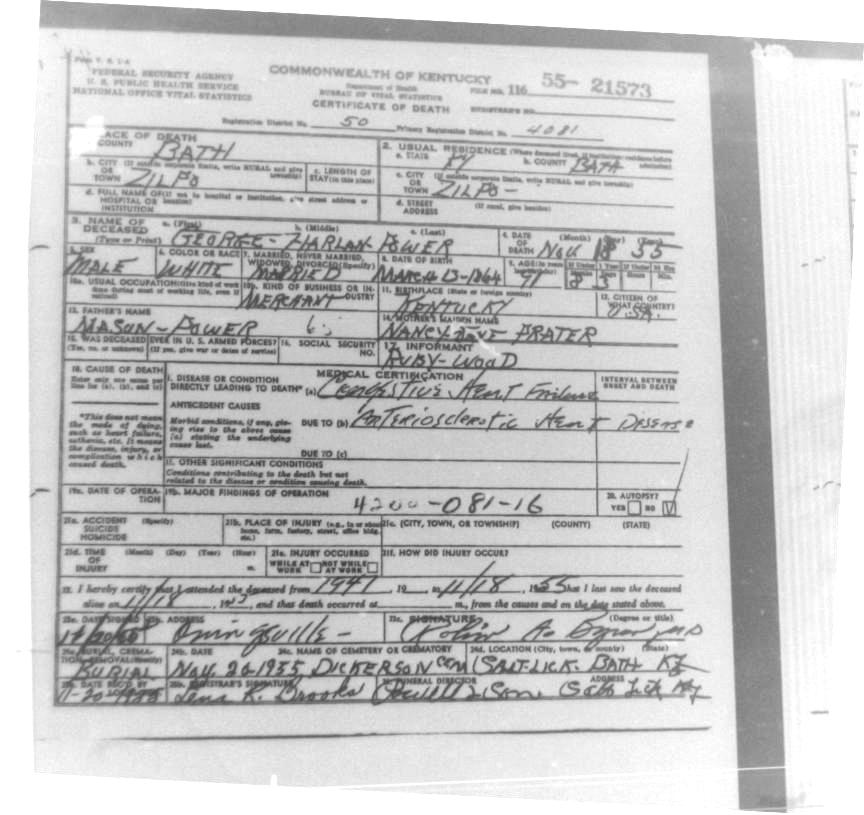 Form V. S. 1-A
FEDERAL SECURITY AGENCY
U. S. PUBLIC HEALTH SERVICE
NATIONAL OFFICE VITAL STATISTICS
COMMONWEALTH OF KENTUCKY
Department of Health
BUREAU OF VITAL STATISTICS
CERTIFICATE OF DEATH
FILE NO. 116 55- 21573
REGISTRAR'S NO.
Registration District No. 50 Primary Registration District No. 4081
PLACE OF DEATH
COUNTY BATH
2. USUAL RESIDENCE (Where deceased lived, if institution: residence before admission)
a. STATE KY b. COUNTY BATH
b. CITY (If outside corporate limits, write RURAL and give township)
OR TOWN ZILPO
c. LENGTH OF STAY (in this place)
c. CITY (If outside corporate limits, write RURAL and give township)
OR TOWN ZILPO -
d. FULL NAME OF (If not in hospital or institution, give street address or location)
HOSPITAL OR INSTITUTION
d. STREET ADDRESS (If rural, give location)
3. NAME OF DECEASED (Type or Print)
a. (First) b. (Middle) c. (Last)
GEORGE - HARLAN - POWER
4. DATE OF DEATH (Month) (Day) (Year)
NOV 18 55
5. SEX MALE
6. COLOR OR RACE WHITE
7. MARRIED, NEVER MARRIED, WIDOWED, DIVORCED (Specify) MARRIED
8. DATE OF BIRTH MARCH 13-1864
9. AGE (In years last birthday) 91 If Under 1 Year Months 8 If Under 24 Hrs Hours Min.
10a. USUAL OCCUPATION (Give kind of work done during most of working life, even if retired)
10b. KIND OF BUSINESS OR INDUSTRY
MERCHANT
11. BIRTHPLACE (State or foreign country)
KENTUCKY
12. CITIZEN OF WHAT COUNTRY?
U.S.A.
13. FATHER'S NAME
MASON - POWER
14. MOTHER'S MAIDEN NAME
NANCY PRATER
15. WAS DECEASED EVER IN U. S. ARMED FORCES?
(Yes, no, or unknown) (If yes, give war or dates of service)
16. SOCIAL SECURITY NO.
17. INFORMANT
RUBY - WOOD
18. CAUSE OF DEATH
Enter only one cause per line for (a), (b), and (c)
MEDICAL CERTIFICATION
INTERVAL BETWEEN ONSET AND DEATH
I. DISEASE OR CONDITION
DIRECTLY LEADING TO DEATH* (a) Congestive Heart Failure
*This does not mean the mode of dying, such as heart failure, asthenia, etc. It means the disease, injury, or complication which caused death.
ANTECEDENT CAUSES
Morbid conditions, if any, giving rise to the above cause (a) stating the underlying cause last.
DUE TO (b) Arteriosclerotic Heart Disease
DUE TO (c)
II. OTHER SIGNIFICANT CONDITIONS
Conditions contributing to the death but not related to the disease or condition causing death.
19a. DATE OF OPERATION
19b. MAJOR FINDINGS OF OPERATION
4200-081-16
20. AUTOPSY?
YES NO
21a. ACCIDENT (Specify)
SUICIDE
HOMICIDE
21b. PLACE OF INJURY (e.g., in or about home, farm, factory, street, office bldg. etc.)
21c. (CITY, TOWN, OR TOWNSHIP) (COUNTY) (STATE)
21d. TIME OF INJURY (Month) (Day) (Year) (Hour) m.
21e. INJURY OCCURRED
WHILE AT WORK NOT WHILE AT WORK
21f. HOW DID INJURY OCCUR?
22. I hereby certify that I attended the deceased from 1941, 19 to 11/18, 1955 that I last saw the deceased
alive on 11/18, 1955, and that death occurred at m., from the causes and on the date stated above.
23a. DATE SIGNED
23b. ADDRESS Owingsville -
23c. SIGNATURE (Degree or title) MD
24a. BURIAL, CREMATION, REMOVAL (Specify) BURIAL
24b. DATE NOV. 20-1955
24c. NAME OF CEMETERY OR CREMATORY DICKERSON CEM
24d. LOCATION (City, town, or county) (State) SALT-LICK. BATH KY
DATE REC'D BY 11-20-1955
REGISTRAR'S SIGNATURE Lena K. Brooks
FUNERAL DIRECTOR & Son
ADDRESS Salt Lick Ky